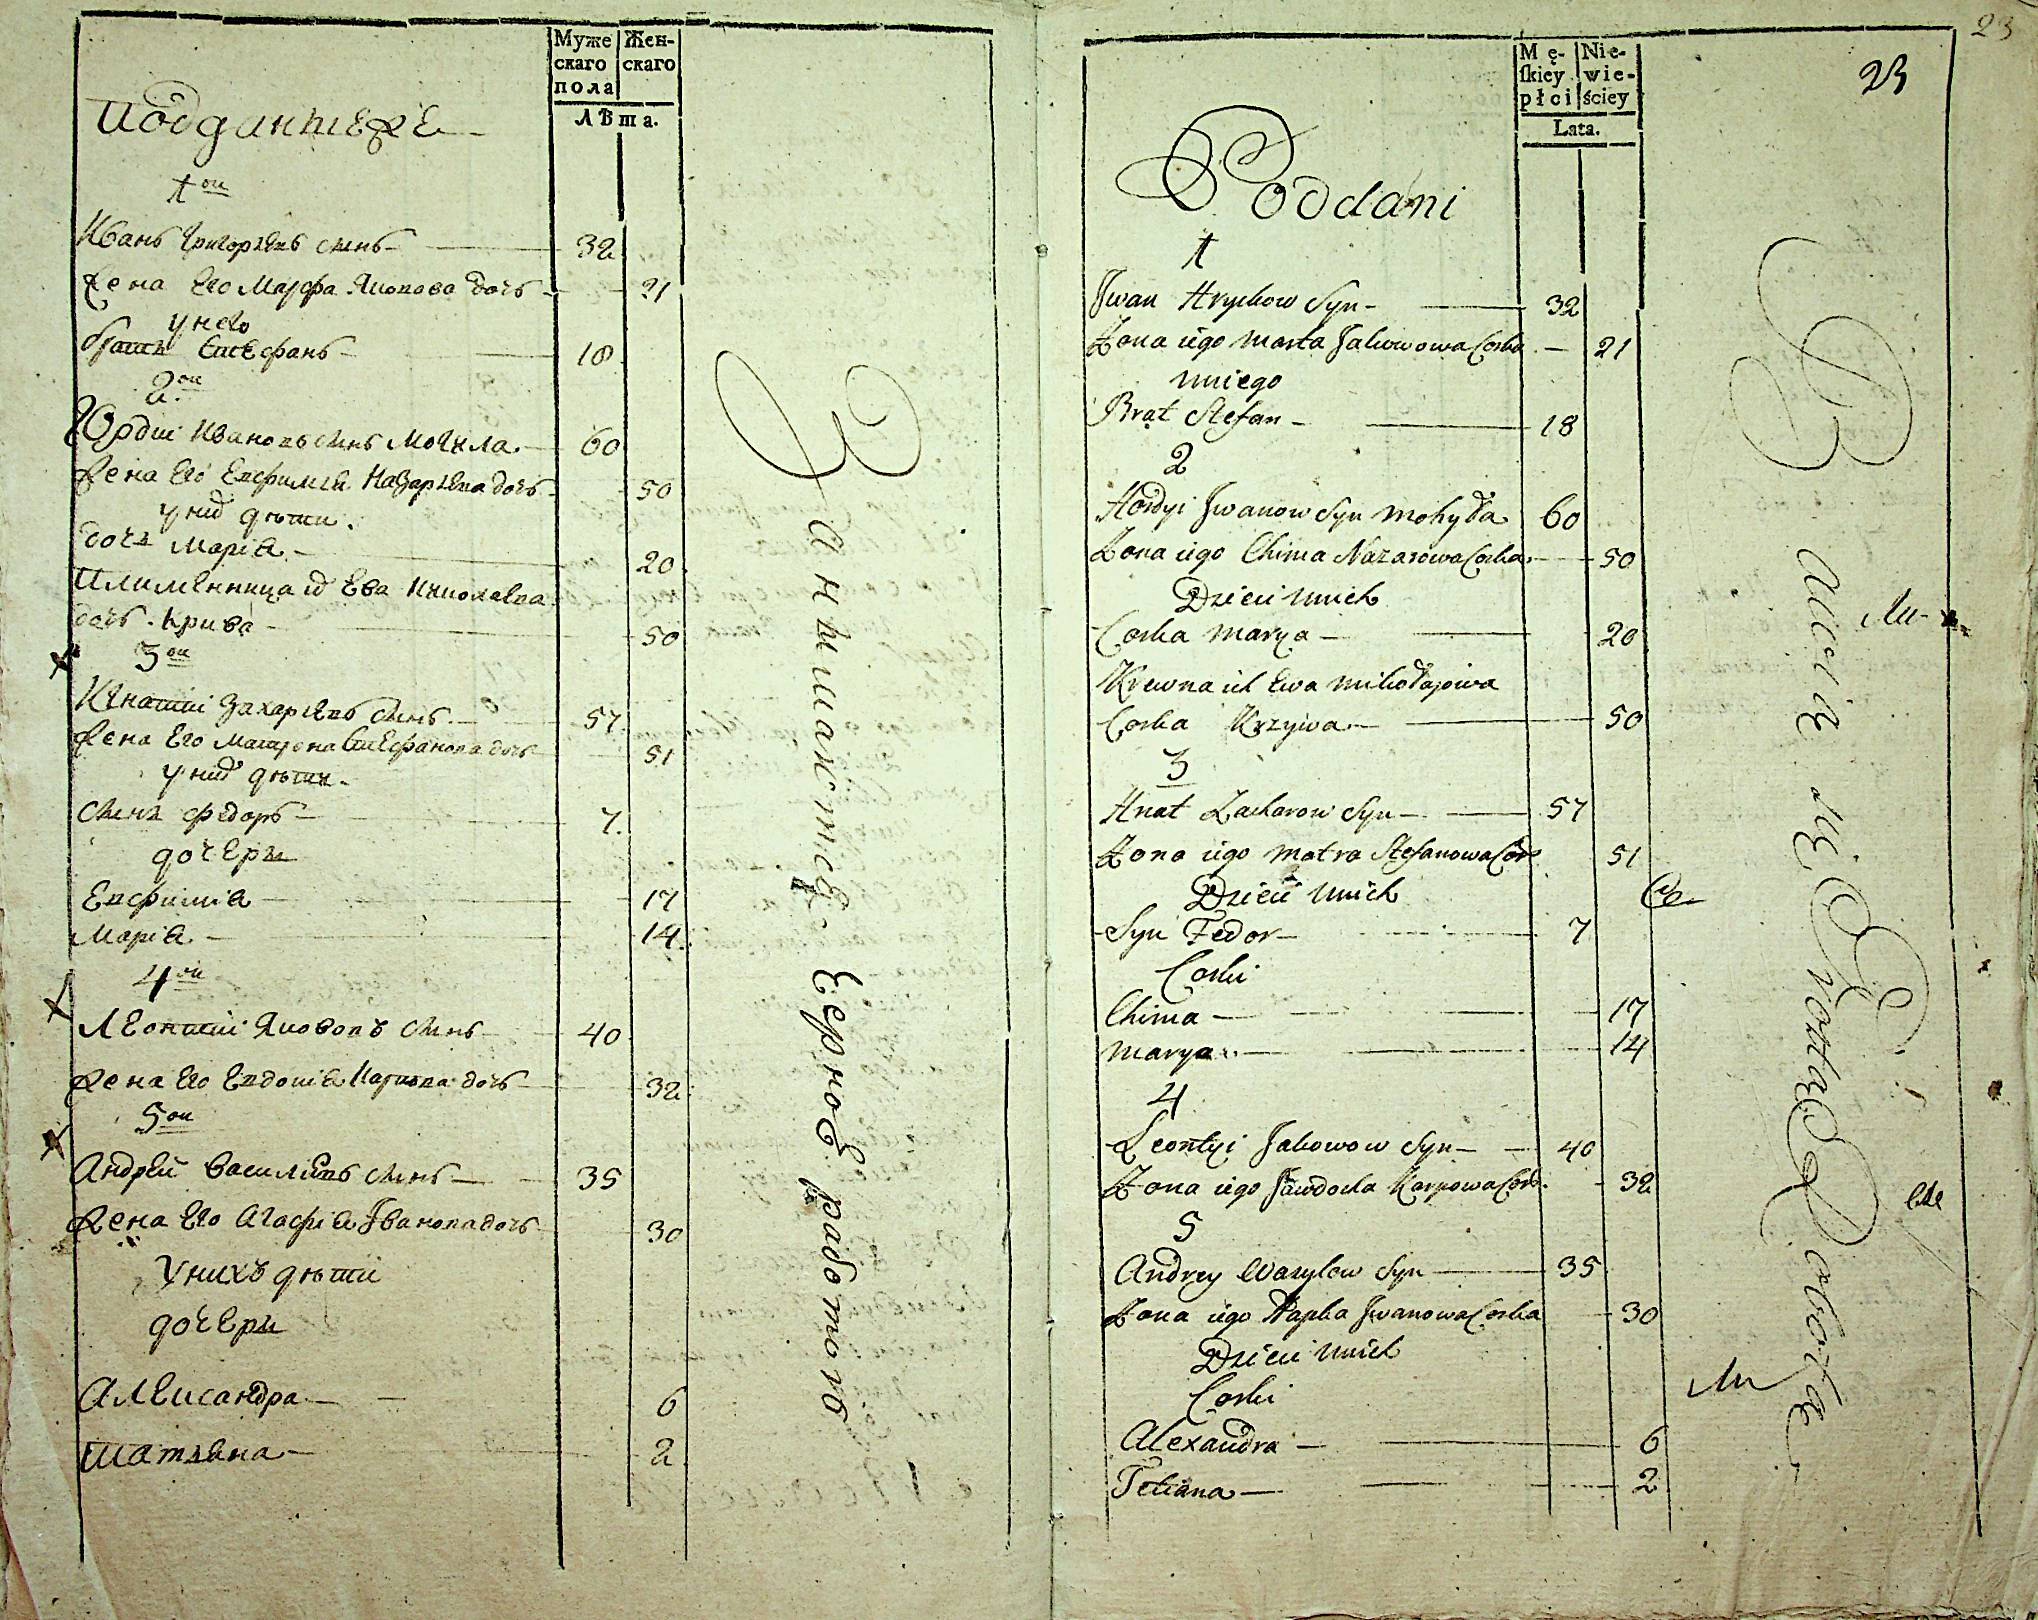 Муже
скаго
пола
Жен-
скаго
Лѣта.
Подданнꙑе
1ои
Иванъ Григорꙗвъ синъ 32
Жена Его Марфа Яковова дочъ 21
у него
братъ Стефанъ 18
2ои
Юрдий Ивановъ синъ Могила 60
Жена Его Евфимія Назарꙗва дочъ 50
у них дѣти.
дочъ Марія 20
Племѣнница их Ева Николаева
дочъ. Крива 50
3ои
Игнатий Захарꙗвъ синъ 57
Жена Его Матрона Стефанова дочъ 51
у них дѣти.
Синъ Федоръ 7.
дочери
Евфимія 17
Марія 14.
4ои
Леонтий Якововъ синъ 40
Жена Его Евдокія Карпова дочъ 32
5ои
Андрей Василіевъ синъ 35
Жена Его Агафія Іванова дочъ 30
У нихъ дѣти
дочери
Александра 6
Татьяна 2
Занимаются Черною работою
23
23
Mę-
skiey
płci
Nie-
wie-
ściey
Lata.
Poddani
1
Jwan Hryckow Syn 32
Zona iego Marta Jakowowa Corka 21
u niego
Brat Stefan 18
2
Hordyi Jwanow Syn Mohyła 60
Zona iego Chima Nazarowa Corka 50
Dzieci u nich
Corka Marya 20
Krewna ich Ewa Mikołajowa
Corka Krzywa 50
3
Hnat Zacharow Syn 57
Zona iego Motra Stefanowa Cor 51
Dzieci u nich
Syn Fedor 7
Corki
Chima 17
Marya 14
4
Leontyi Jakowow Syn 40
Zona iego Jawdocha Karpowa Cor. 32
5
Andrey Wasylow Syn 35
Zona iego Hapka Jwanowa Corka 30
Dzieci u nich
Corki
Alexandra 6
Tetiana 2
Bawią się Prostą Robotą